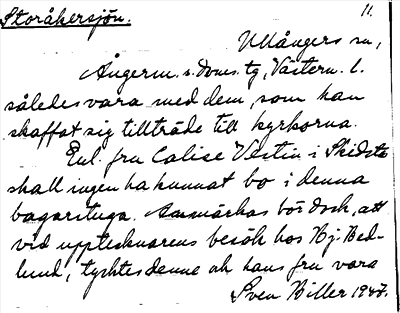 Storåkersjön.
11.
Ullångers sn,
Ångerm. s. doms. tg, Västern. l.
således vara med dem, som han
skaffat sig tillträde till kyrkorna.
Enl. fru Calise Vestin i Skidsta
skall ingen ha kunnat bo i denna
bagarstuga. Anmärkas bör dock, att
vid uppteckarens besök hos Bj. Bed-
lund, tycktes denne och hans fru vara
Sven Biller 1947.